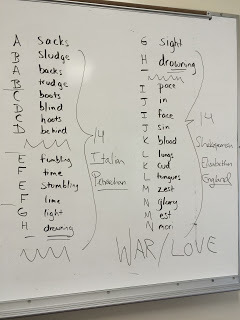 A sacks
B Sludge
A backs
B trudge
C boots
D blind
C hoots
D behind
E fumbling
F time
E stumbling
F lime
G light
H drowning
14
Italian
Petrarchan
G sight
H drowning
I pace
J in
I face
J sin
K blood
L lungs
K cud
L tongues
M zest
N glory
M est
N mori
14
Shakespearean
Elizabethan
England
WAR/LOVE